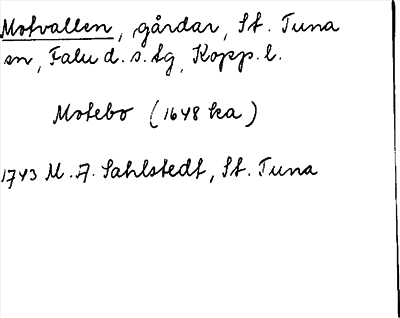 Motvallen, gårdar, St. Tuna
sn, Falu d. s. tg, Kopp. l.
Motebo (1648 ka)
1743 M. A. Sahlstedt, St. Tuna